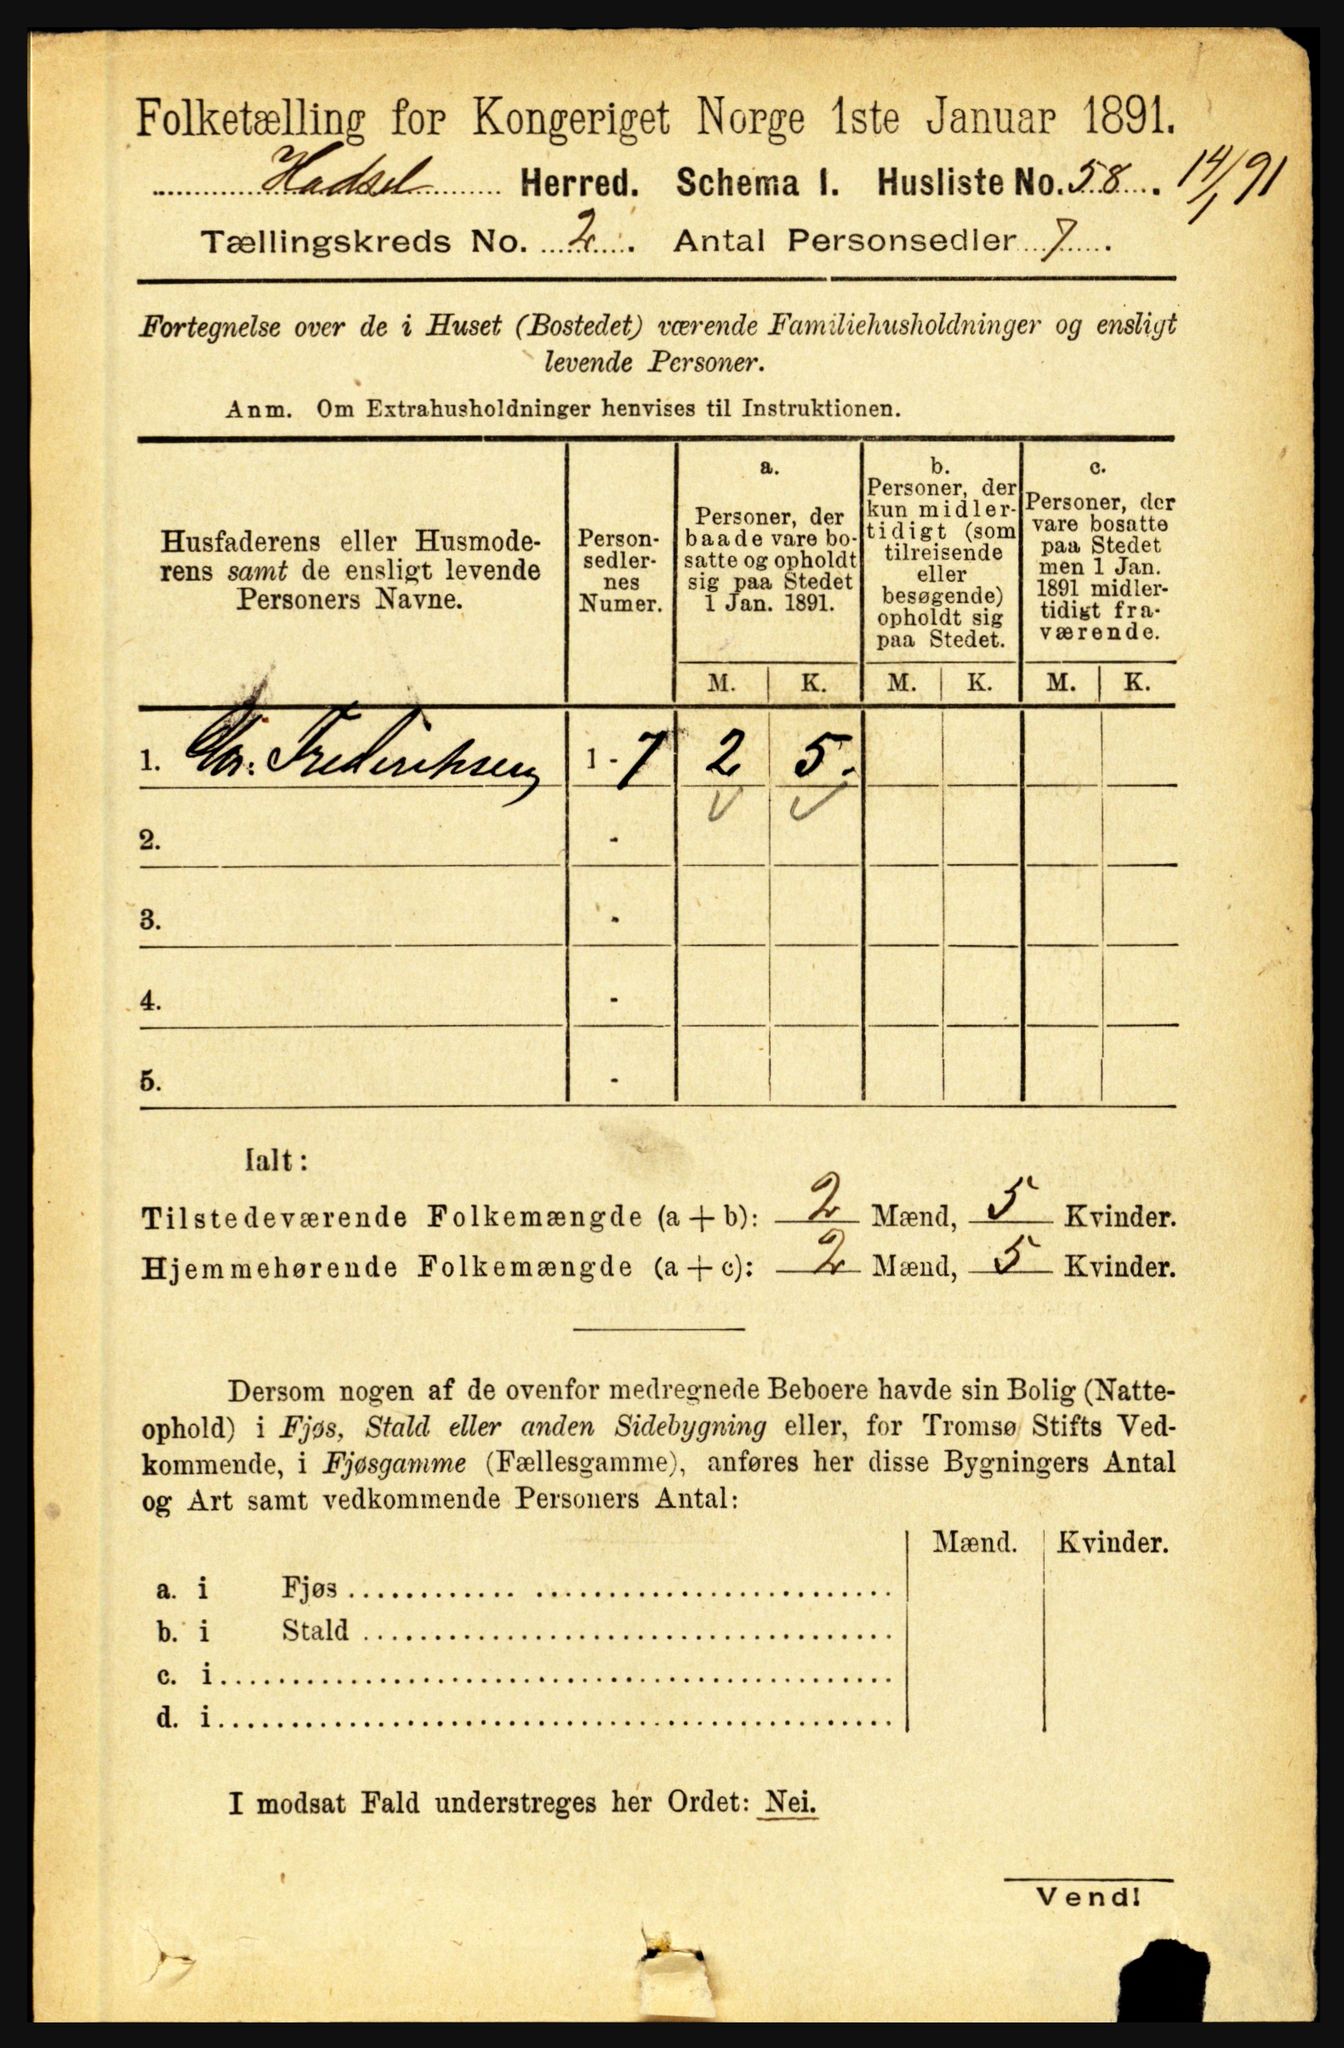 Folketælling for Kongeriget Norge 1ste Januar 1891.
Hadsel Herred. Schema I. Husliste No. 58. 14/1 91
Tællingskreds No. 2. Antal Personsedler 7.
Fortegnelse over de i Huset (Bostedet) værende Familiehusholdninger og ensligt
levende Personer.
Anm. Om Extrahusholdninger henvises til Instruktionen.
Husfaderens eller Husmode-
rens samt de ensligt levende
Personers Navne.
Person-
sedler-
nes
Numer.
a.
Personer, der
baade vare bo-
satte og opholdt
sig paa Stedet
1 Jan. 1891.
b.
Personer, der
kun midler-
tidigt (som
tilreisende
eller
besøgende)
opholdt sig
paa Stedet.
c.
Personer, der
vare bosatte
paa Stedet
men 1 Jan.
1891 midler-
tidigt fra-
værende.
M. K. M. K. M. K.
1. Frederiksen 1 - 7 2 5.
2. -
3. -
4. -
5. -
Ialt:
Tilstedeværende Folkemængde (a + b): 2 Mænd, 5 Kvinder.
Hjemmehørende Folkemængde (a + c): 2 Mænd, 5 Kvinder.
Dersom nogen af de ovenfor medregnede Beboere havde sin Bolig (Natte-
ophold) i Fjøs, Stald eller anden Sidebygning eller, for Tromsø Stifts Ved-
kommende, i Fjøsgamme (Fællesgamme), anføres her disse Bygningers Antal
og Art samt vedkommende Personers Antal:
Mænd. Kvinder.
a. i Fjøs
b. i Stald
c. i
d. i
I modsat Fald understreges her Ordet: Nei.
Vend!